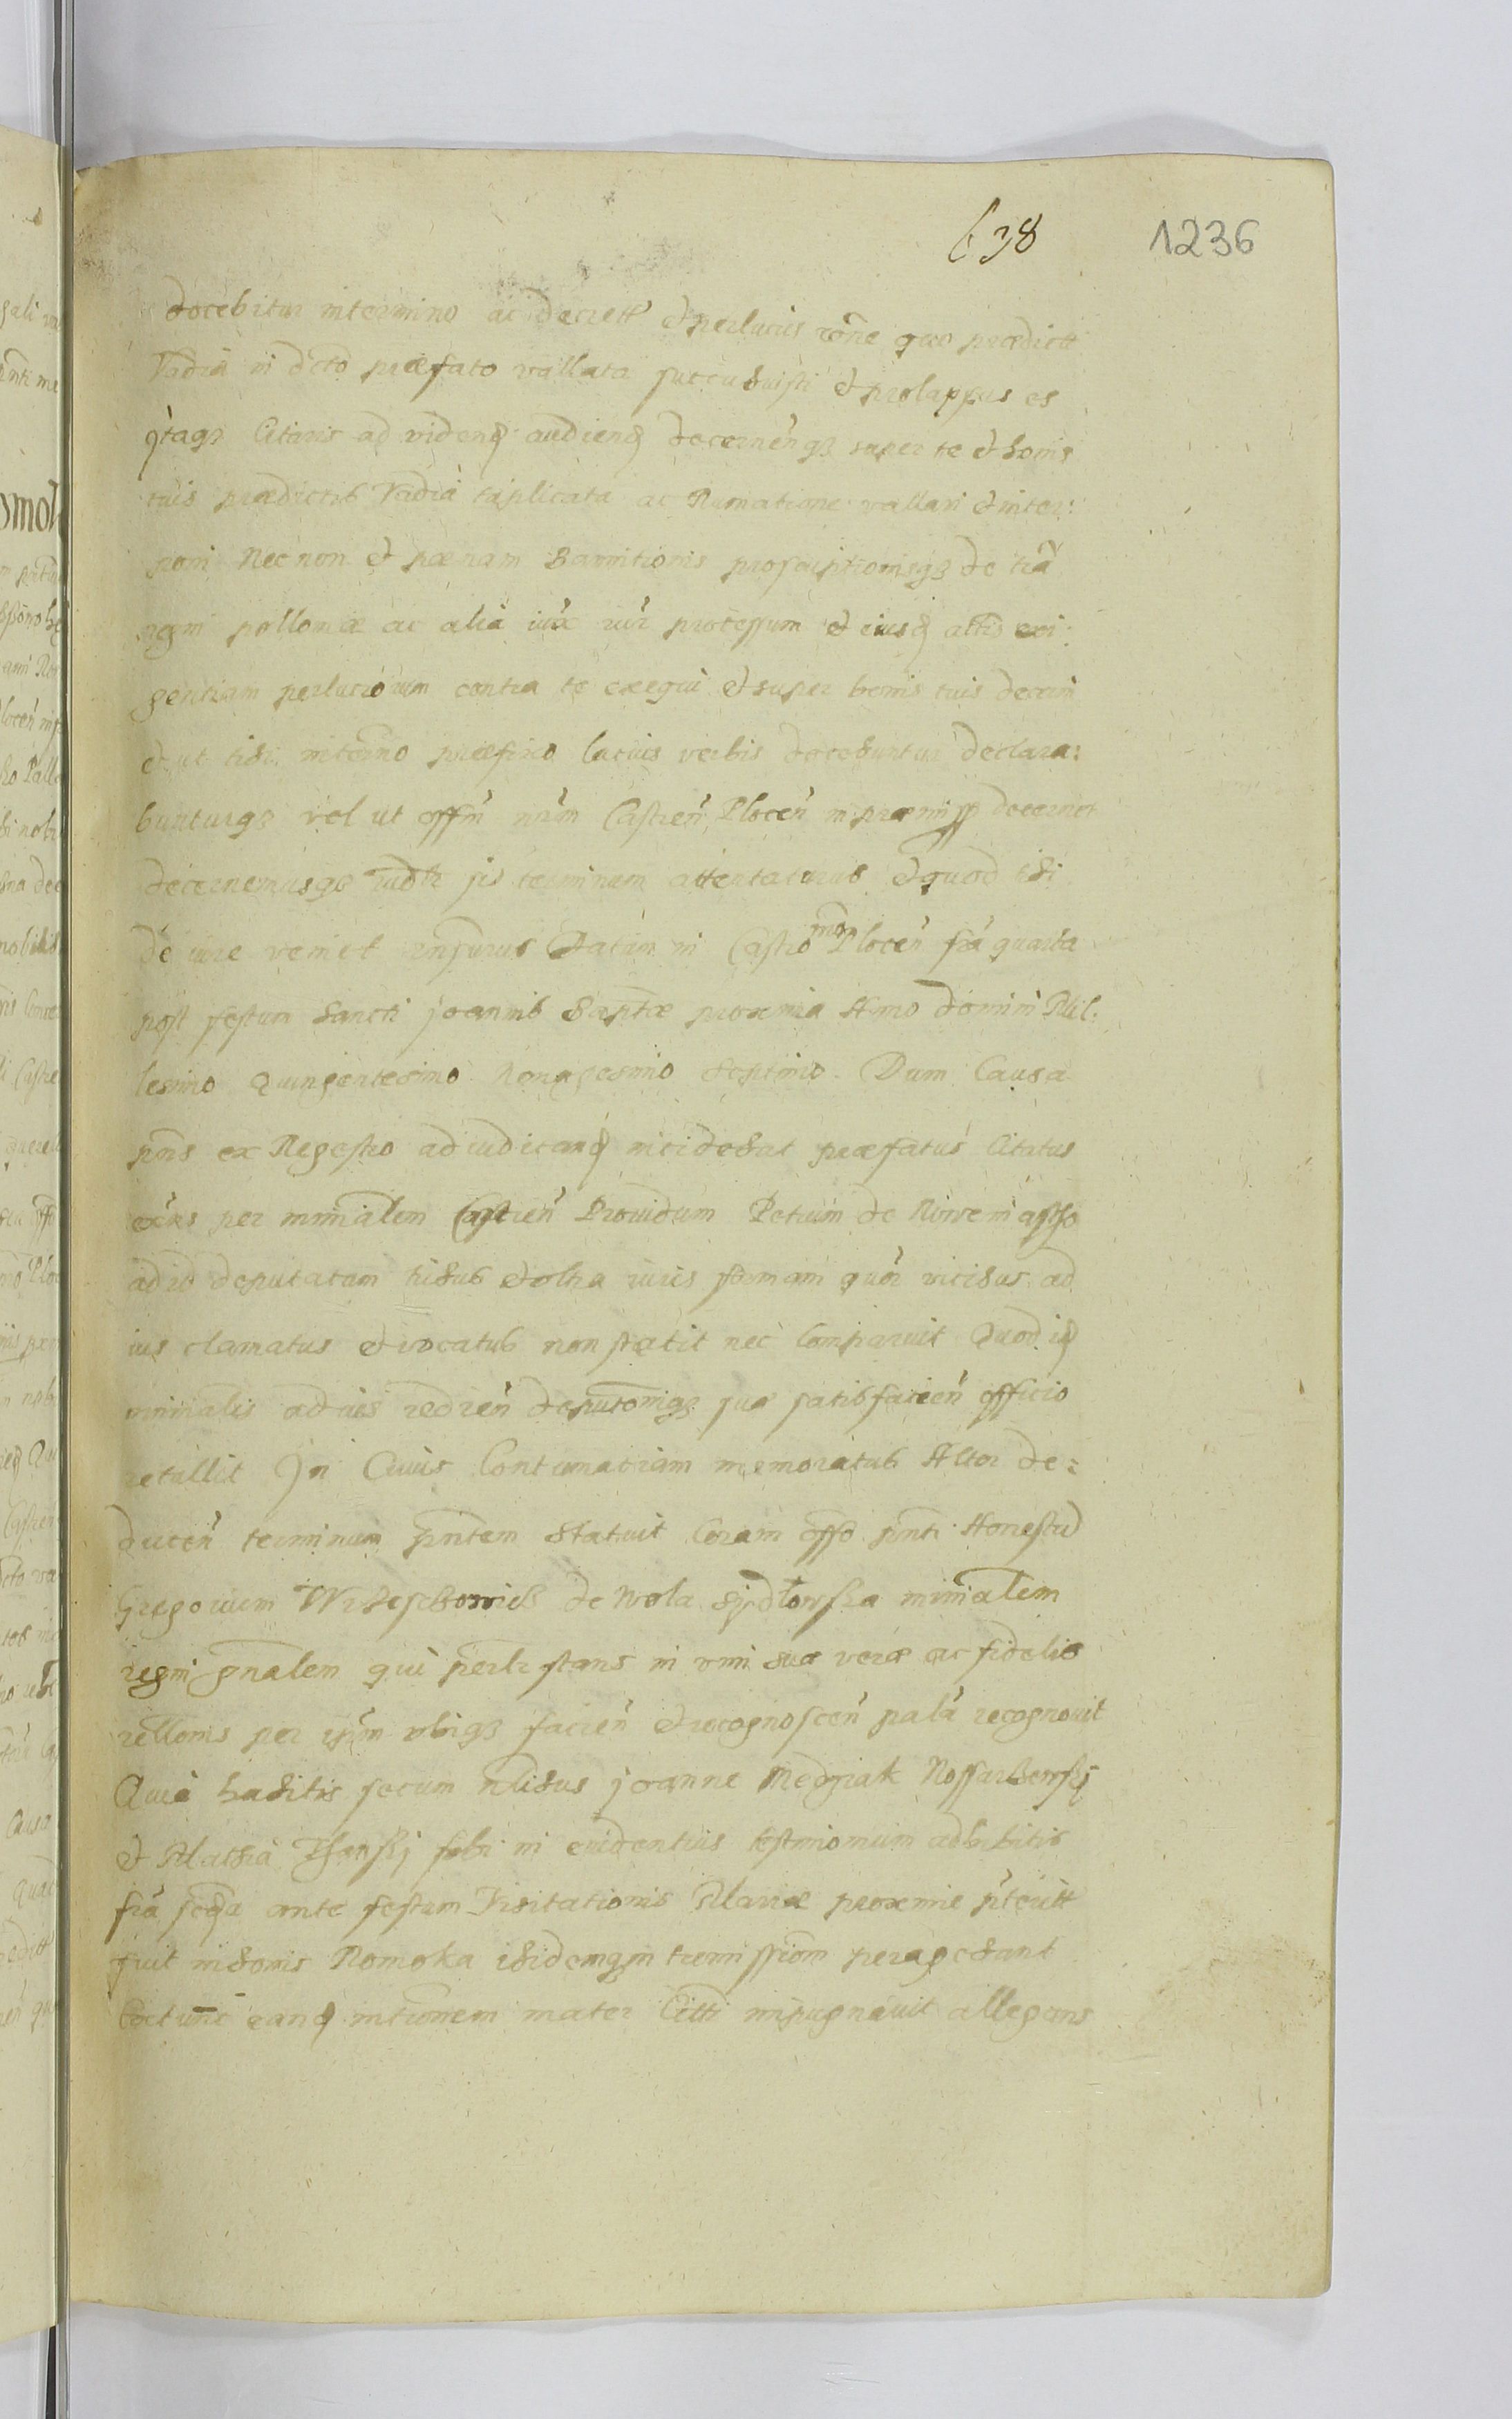 638 1236
docebitur in termino ac decrett et perlucius rône quo prædictt
Vadia in dcto præfato vallata succubuisti et prolapsus es
itaqz Citaris ad videnḍ audienḍ decernenqz super te et bonis
tuis prædictis Vadia triplicata ac Rumatione vallari et inter:
poni Nec non et pænam Bannitionis proscriptionisqz de tra
regni polloniæ ac alia iux iur processum et eiusḍ attis exi:
gentiam perluciorum contra te exequi et super bonis tuis decerni
et ut tibi in termino præfixo lucius verbis docebuntur declara:
bunturqz vel ut offm nrum Castren Plocen in præmissȩ decernet
decernemusqz iudtr sis terminum attentaturus et quod tibi
de iure veniet rnsurus Datum in Castro Plocen fra quarta
post festum Sancti Joannis Baptæ proxima Anno domini Mil:
lesimo Quingentesimo Nonagesimo Septimo. Dum Causa
pns ex Regestro ad iudicanḍ incidebat præfatus Citatus
per minralem Castren Providum Petrum de Nowemiasto
ad id deputatum tribus et vltra iuris formam quor vicibus ad
ius clamatus et vocatus non stetit nec Comparuit Quod iḍ
minralis ad ius redien deputonisqz suæ satisfacien officio
retullit In Cuius Contumatiam memoratus Actor de=
ducen terminum pntem Statuit Coram offo pnti Honestu
Gregorium de Wola Sydlowska minralem
regni gnalem qui perlr stans in vim suæ veræ ac fidelis
rellonis per ipsm vbiqz facien et recognoscen pala recognouit
Quia habitis secum nlibus Joanne Medrzak
et Mathia sibi in euidentius testimonium adhibitis
fra scḍa ante festum Visitationis Mariæ proxime pteritt
fuit in bonis Romoka ibidemqz intromissiom peragebant
Coctunc eanḍ intromem mater Citti impugnauit allegans